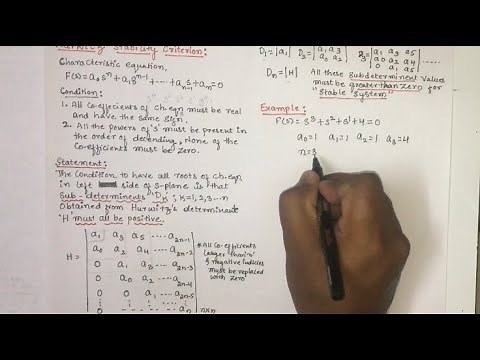 Stability Criterion:
Characteristic equation,
F(s) = a₀sⁿ + a₁sⁿ⁻¹ + ---- + aₙ₋₁s + aₙ = 0
Condition:
1. All Co-effecients of ch.eqn must be real
and have the same sign.
2. All the powers of 's' must be present in
the order of decending, None of the
Co-efficients must be zero.
Statement:
The Condition to have all roots of ch.eqn
in left side of s-plane is that
Sub-determinents Dₖ; k=1,2,3---n
Obtained from Hurwitz's determinant
'H' must all be positive.
H =
a₁ a₃ a₅ ---- a₂ₙ₋₁
a₀ a₂ a₄ ---- a₂ₙ₋₂
0 a₁ a₃ ---- a₂ₙ₋₃
0 a₀ a₂ ---- a₂ₙ₋₄
0 0 a₁ ---- a₂ₙ₋₅
n×n
*All co-efficients
larger than 'n'
& negative indicies
must be replaced
with zero
D₁ = |a₁| D₂ = |a₁ a₃
a₀ a₂|
a₁ a₃ a₅
a₀ a₂ a₄
0 a₁ a₃
Dₙ = |H|
All these Subdeterminent values
must be greater than zero for
"Stable System"
Example:
F(s) = s³ + s² + s¹ + 4 = 0
a₀=1 a₁=1 a₂=1 a₃=4
n=3